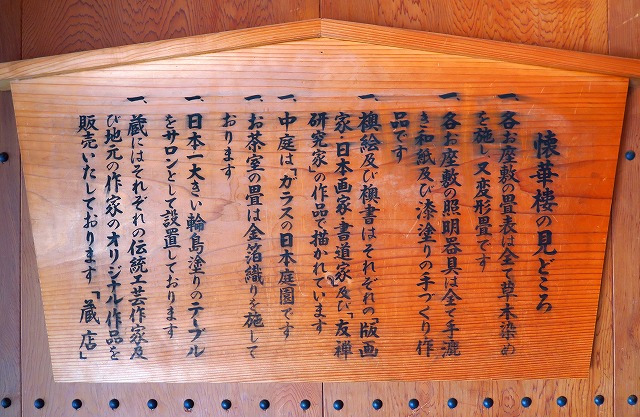 懐華樓の見どころ
一、各お座敷の畳表は全て草木染め
を施し又変形畳です
一、各お座敷の照明器具は全て手漉
き和紙及び漆塗りの手づくり作
品です
一、襖絵及び襖書はそれぞれの「版画
家・日本画家・書道家及び友禅
研究家」の作品で描かれています
一、中庭は「ガラスの日本庭園」です
一、お茶室の畳は金箔織りを施して
おります
一、日本一大きい輪島塗りのテーブル
をサロンとして設置しております
一、蔵にはそれぞれの伝統工芸作家及
び地元の作家のオリジナル作品を
販売いたしております「蔵店」